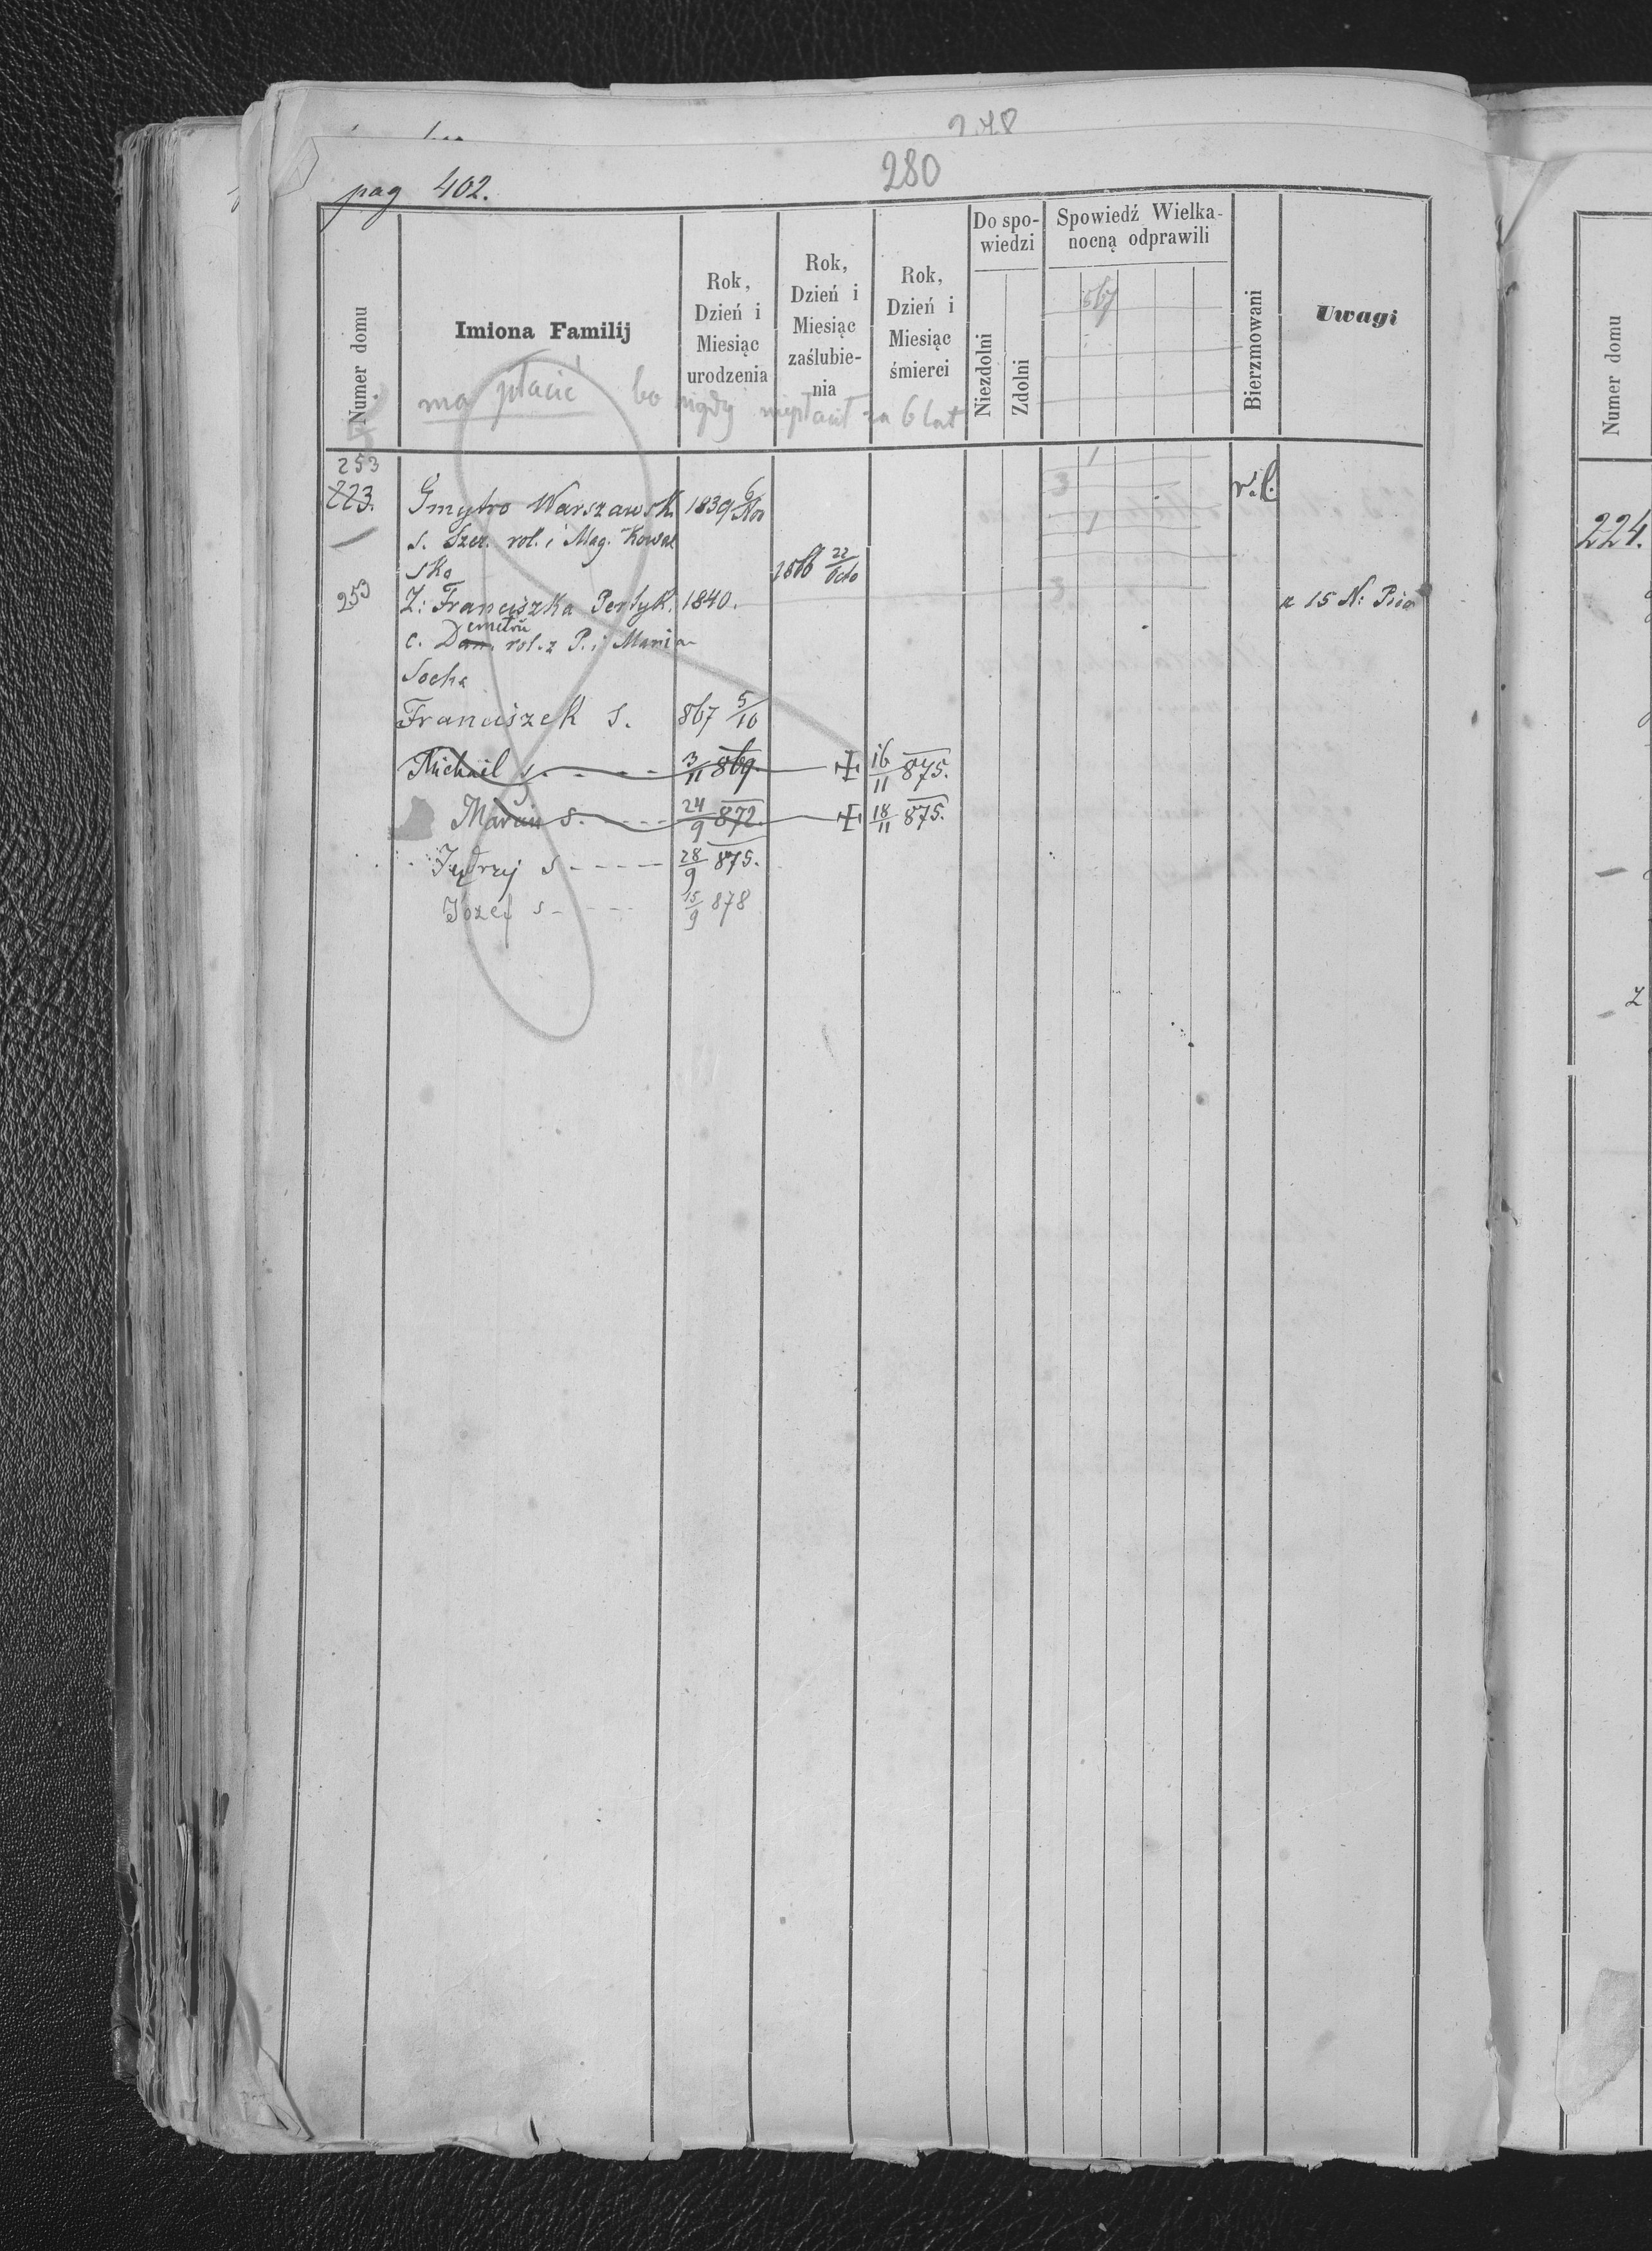 278
280
pag 402.
Numer domu
Imiona Familij
Rok,
Dzień i
Miesiąc
urodzenia
Rok,
Dzień i
Miesiąc
zaślubie-
nia
Rok,
Dzień i
Miesiąc
śmierci
Do spo-
wiedzi
Niezdolni
Zdolni
Spowiedź Wielka-
nocną odprawili
867
Bierzmowani
Uwagi
Numer domu
ma płacić bo nigdy niepłacił za 6 lat
253
223. Gmytro Warszawsk. 1839 r.l.
s. Szez. rol. i Mag. Kowal
sko 1866 22/Octo
253 Ż: Franciszka Pertyk. 1840. z 15 N:
c. Dam. emetrii rol. z P. i Maria
Socha
Franciszek S. 867 5/10
Michail s. - - - - 3/11 869. ✠ 16/11 875.
Marcin s. - - - - 24/9 872. ✠ 18/11 875.
Jędrzej s - - - - 28/9 875.
Józef s - - - 15/9 878
1
3
1
3
224.